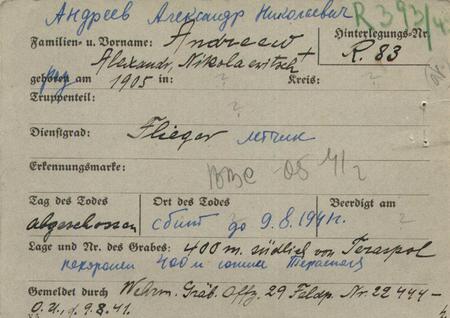 Андреев Александр Николаевич R 393/4
Familien- u. Vorname: Andreew Hinterlegungs-Nr.
Alexandr, Nikolaewitsch + R. 83
geboren am 1905 in: ? Kreis: ?
Truppenteil: ?
Dienstgrad: Flieger летчик
Erkennungsmarke: ?
ВВС
Tag des Todes Ort des Todes Beerdigt am
abgeschossen сбит до 9.8.1941г. ?
Lage und Nr. des Grabes: 400 m. südlich von Teraspol
похоронен 400 м южнее
Gemeldet durch Wehrm. Gräb. Offz. 29 Feldp. Nr. 22444-
O.U., d. 9.8.41.